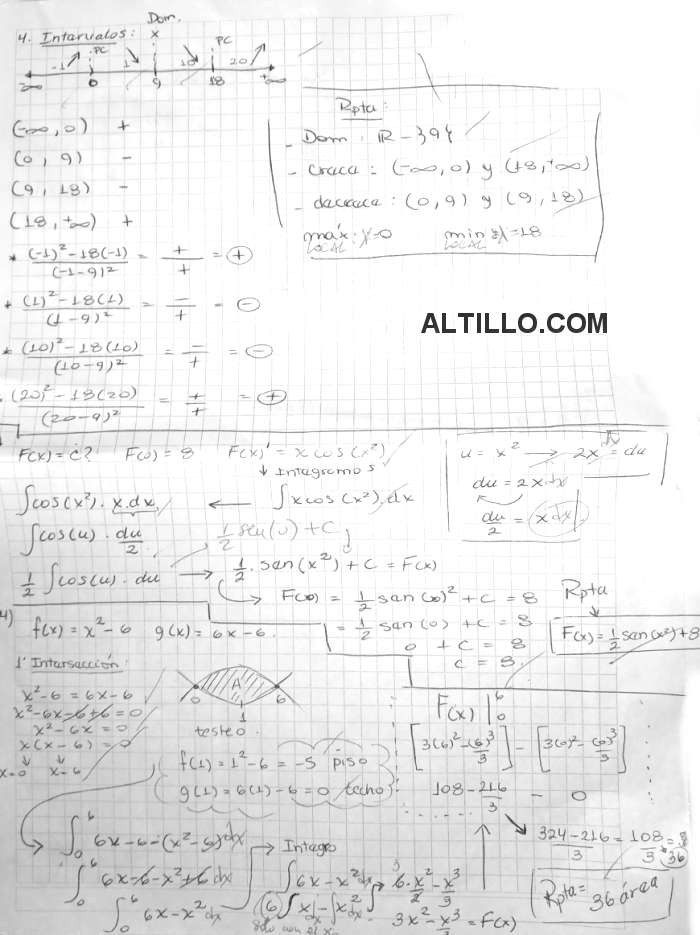 Dom.
4. Intervalos: x
PC PC
-1 1 10 20
-∞ 0 9 18 +∞
(-∞, 0) +
(0, 9) -
(9, 18) -
(18, +∞) +
* (-1)²-18(-1) / (-1-9)² = +/+ = +
* (1)²-18(1) / (1-9)² = -/+ = -
* (10)²-18(10) / (10-9)² = -/+ = -
(20)²-18(20) / (20-9)² = +/+ = +
Rpta:
- Dom: R-{9}
- crece: (-∞, 0) y (18, +∞)
- decrece: (0, 9) y (9, 18)
máx: x=0 min: x=18
LOCAL LOCAL
ALTILLO.COM
F(x) = ¿? F(0) = 8 F(x)' = x cos(x²)
↓ Integramos
∫cos(x²). x.dx ← ∫x cos(x²).dx
∫cos(u). du/2 1/2 sen(u) + C
1/2 ∫cos(u).du → 1/2 . sen(x²) + C = F(x)
u = x² → 2x dx = du
du = 2x.dx
du/2 = x dx
F(0) = 1/2 sen(0)² + C = 8
= 1/2 sen(0) + C = 8
0 + C = 8
C = 8.
Rpta
F(x) = 1/2 sen(x²)+8
4)
f(x) = x²-6 g(x) = 6x-6.
1° Intersección:
x²-6 = 6x-6
x²-6x-6+6=0
x²-6x = 0
x(x-6) = 0
x=0 x=6
A
0 1 6
testeo.
f(1) = 1²-6 = -5 piso
g(1) = 6(1)-6 = 0 techo
∫₀⁶ 6x-6-(x²-6)dx
∫₀⁶ 6x-6-x²+6 dx
∫₀⁶ 6x-x² dx
→ Integro
∫6x-x²dx → 6.x²/2 - x³/3
6∫x dx - ∫x²dx
3x²-x³/3 = F(x)
F(x) |₀⁶
[3(6)²-(6)³/3] - [3(0)²-(0)³/3]
108-216/3 - 0
324-216/3 = 108/3 = 36
Rpta= 36 área